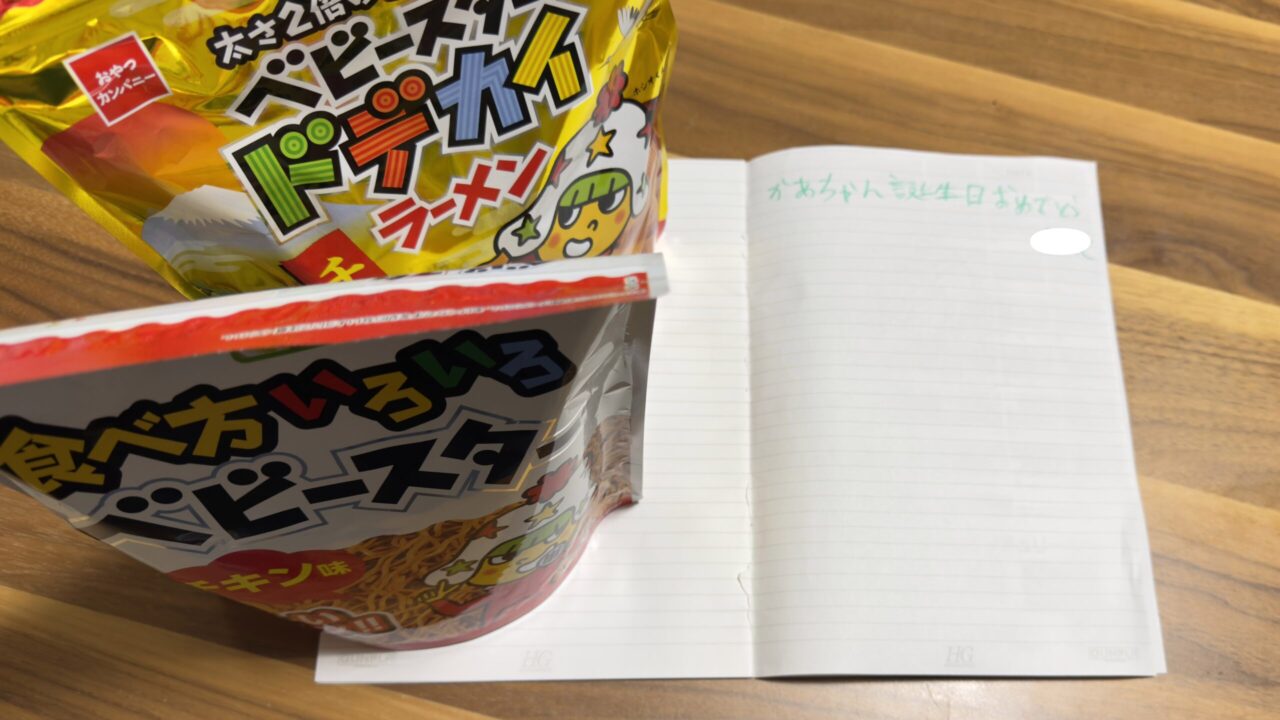 太さ2倍
ベビースター
ドデカイ
ラーメン
おやつ
カンパニー
チ
食べ方いろいろ
ベビースター
チキン味
かあちゃん誕生日おめでとう
HG
HG